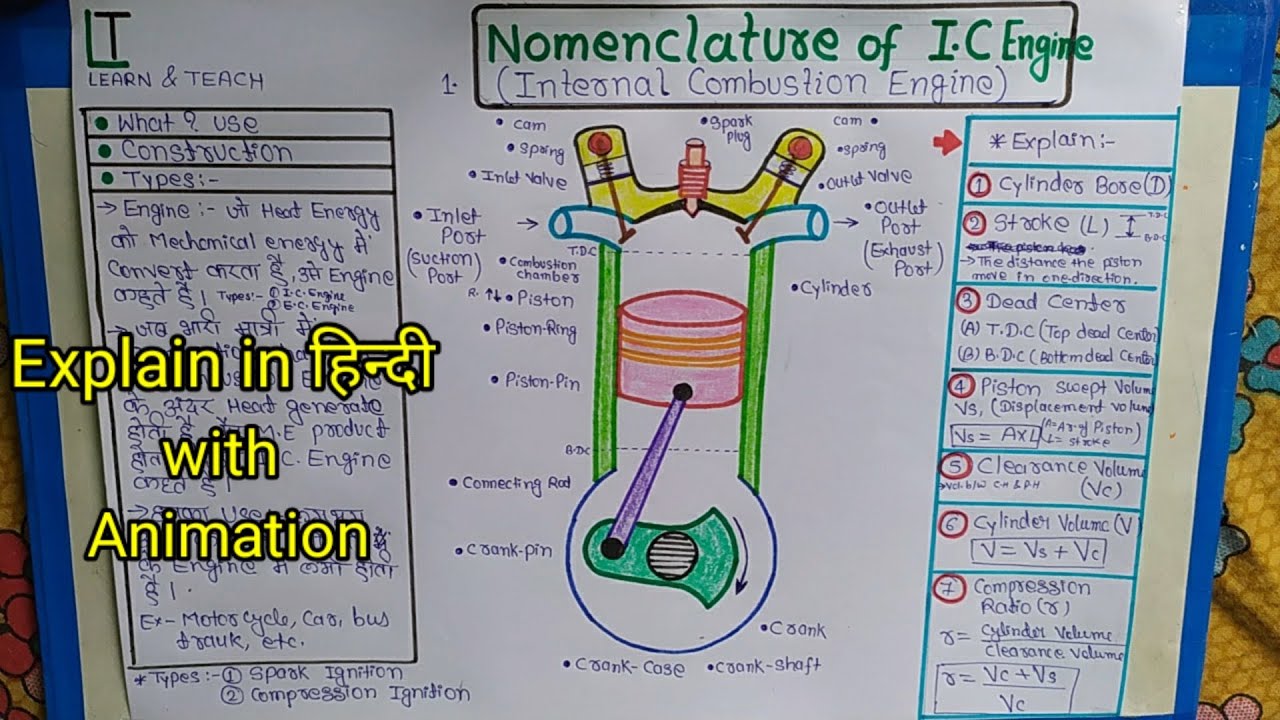 LT
LEARN & TEACH
Nomenclature of I.C Engine
1. (Internal Combustion Engine)
• What? use
• Construction
• Types:-
→ Engine:- जो Heat Energy
को Mechanical energy में
convert करता है, उसे Engine
कहते हैं। Types:- ① I.C. Engine
② E.C. Engine
→ जब भारी मात्रा में
के अंदर Heat generate
होती है M.E product
C. Engine
कहते हैं।
→ use
के Engine में लगा होता
है।
Ex- Motorcycle, car, bus
trauk, etc.
* Types:- ① Spark Ignition
② Compression Ignition
Explain in हिन्दी
with
Animation
• Cam
• Spring
• Inlet Valve
• Inlet
Port
(Suction
Port)
• Spark
Plug
Cam •
• Spring
• Outlet Valve
• Outlet
Port
(Exhaust
Port)
T.D.C
• Combustion
chamber
R. ↑↓ • Piston
• Piston-Ring
• Piston-Pin
• Cylinder
B.D.C
• Connecting Rod
• Crank-pin
• Crank
• Crank-Case
• Crank-Shaft
* Explain:-
① Cylinder Bore (D)
② Stroke (L) T.D.C
B.D.C
→ The distance the piston
move in one direction.
③ Dead Center
(A) T.D.C (Top dead Center)
(B) B.D.C (Bottom dead Center)
④ Piston swept Volum
Vs, (Displacement volum
Vs = A×L (A = Ar. of Piston)
L = stroke
⑤ Clearance Volume
→ Vol. b/w C.H & P.H (Vc)
⑥ Cylinder Volume (V)
V = Vs + Vc
⑦ Compression
Ratio (r)
r = Cylinder Volume
Clearance Volume
r = Vc + Vs
Vc